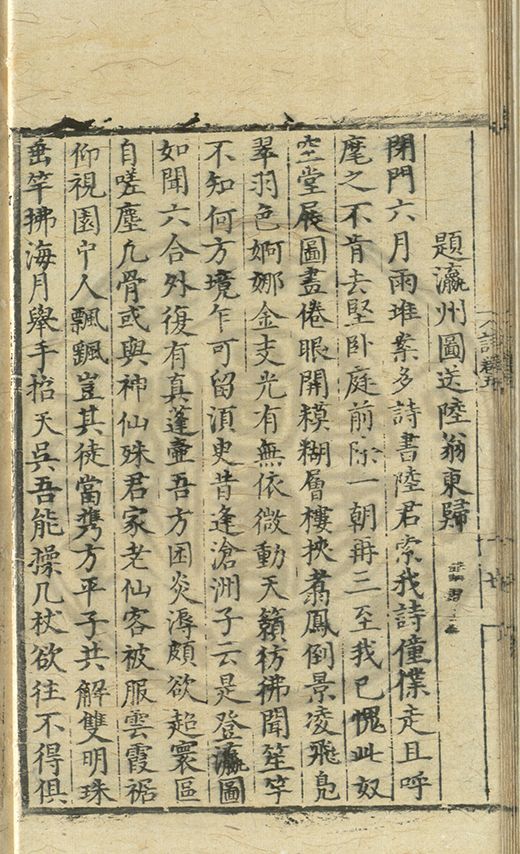 題瀛州圖送陸翁東歸
閉門六月雨堆案多詩書陸君索我詩僮僕走且呼
麾之不肯去堅卧庭前除一朝再三至我已愧此奴
空堂展圖畫倦眼開糢糊層樓挾翥鳳倒景凌飛鳧
翠羽色婀娜金支光有無依微動天籟彷彿聞笙竽
不知何方境乍可留須史昔逢滄洲子云是登瀛圖
如聞六合外復有真蓬壺吾方困炎溽頗欲超寰區
自嗟塵凢骨或與神仙殊君家老仙客被服雲霞裾
仰視園中人飄飄豈其徒當携方平子共解雙明珠
垂竿拂海月舉手招天吳吾能操几杖欲往不得俱